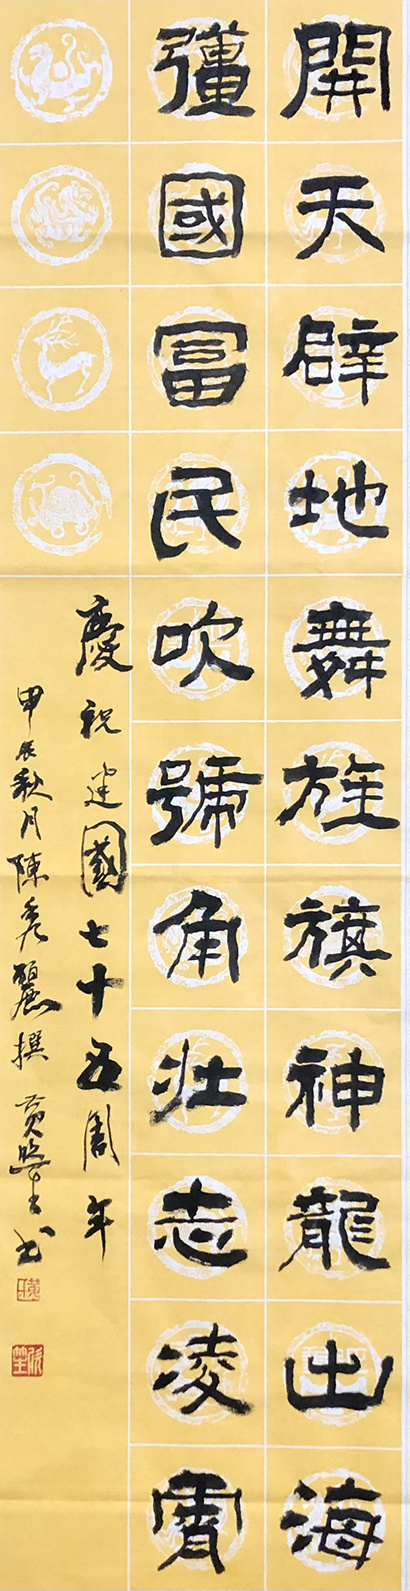 開天辟地舞旌旗神龍出海
彊國富民吹號角壯志凌霄
慶祝建國七十五周年
甲辰秋月陳秀麗撰黃照筆书